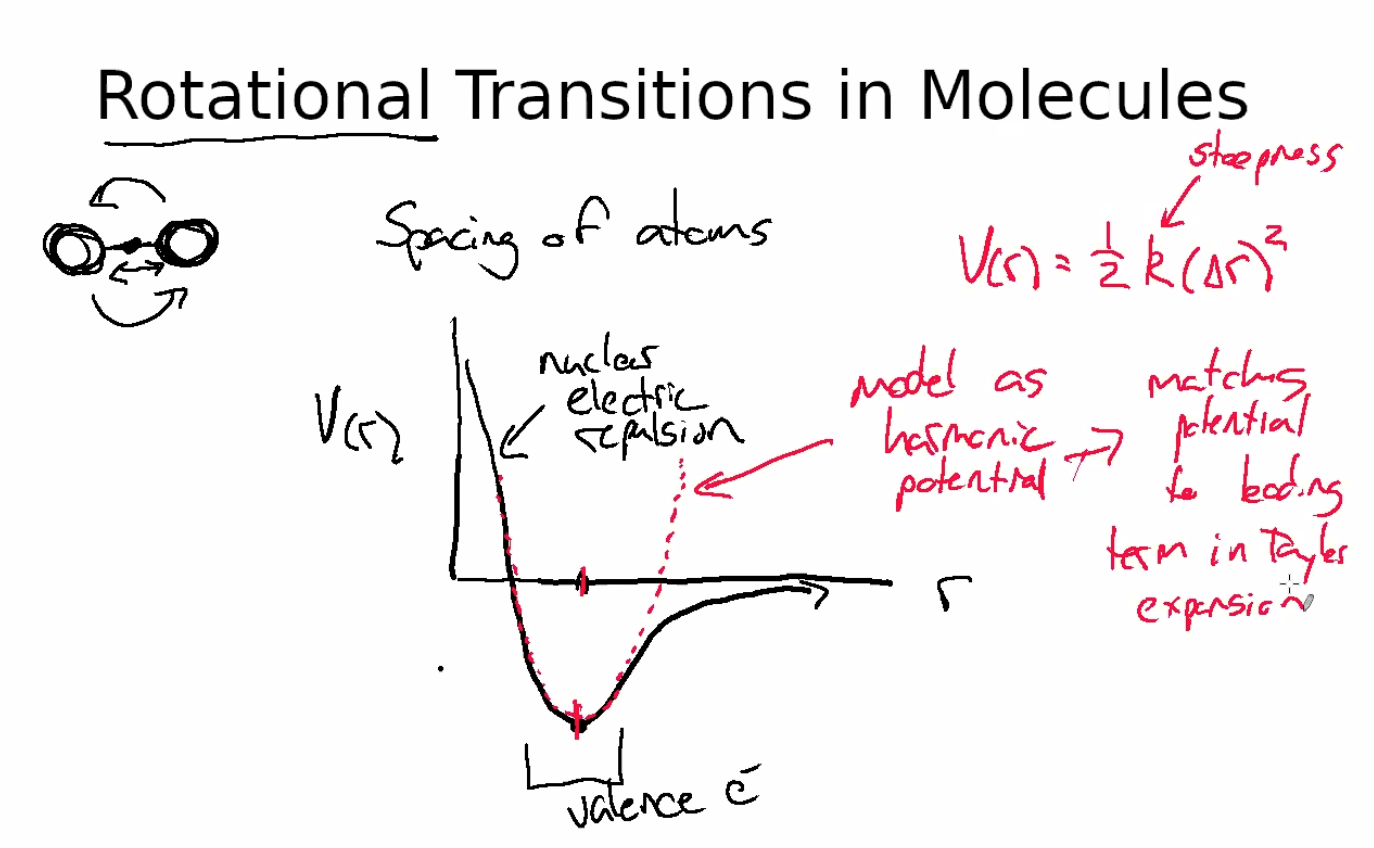 Rotational Transitions in Molecules
steepness
Spacing of atoms
V(r) = 1/2 k (Δr)²
nuclear
electric
repulsion
V(r)
model as
harmonic
potential
matches
potential
to leading
term in Taylor
expansion
r
valence e⁻